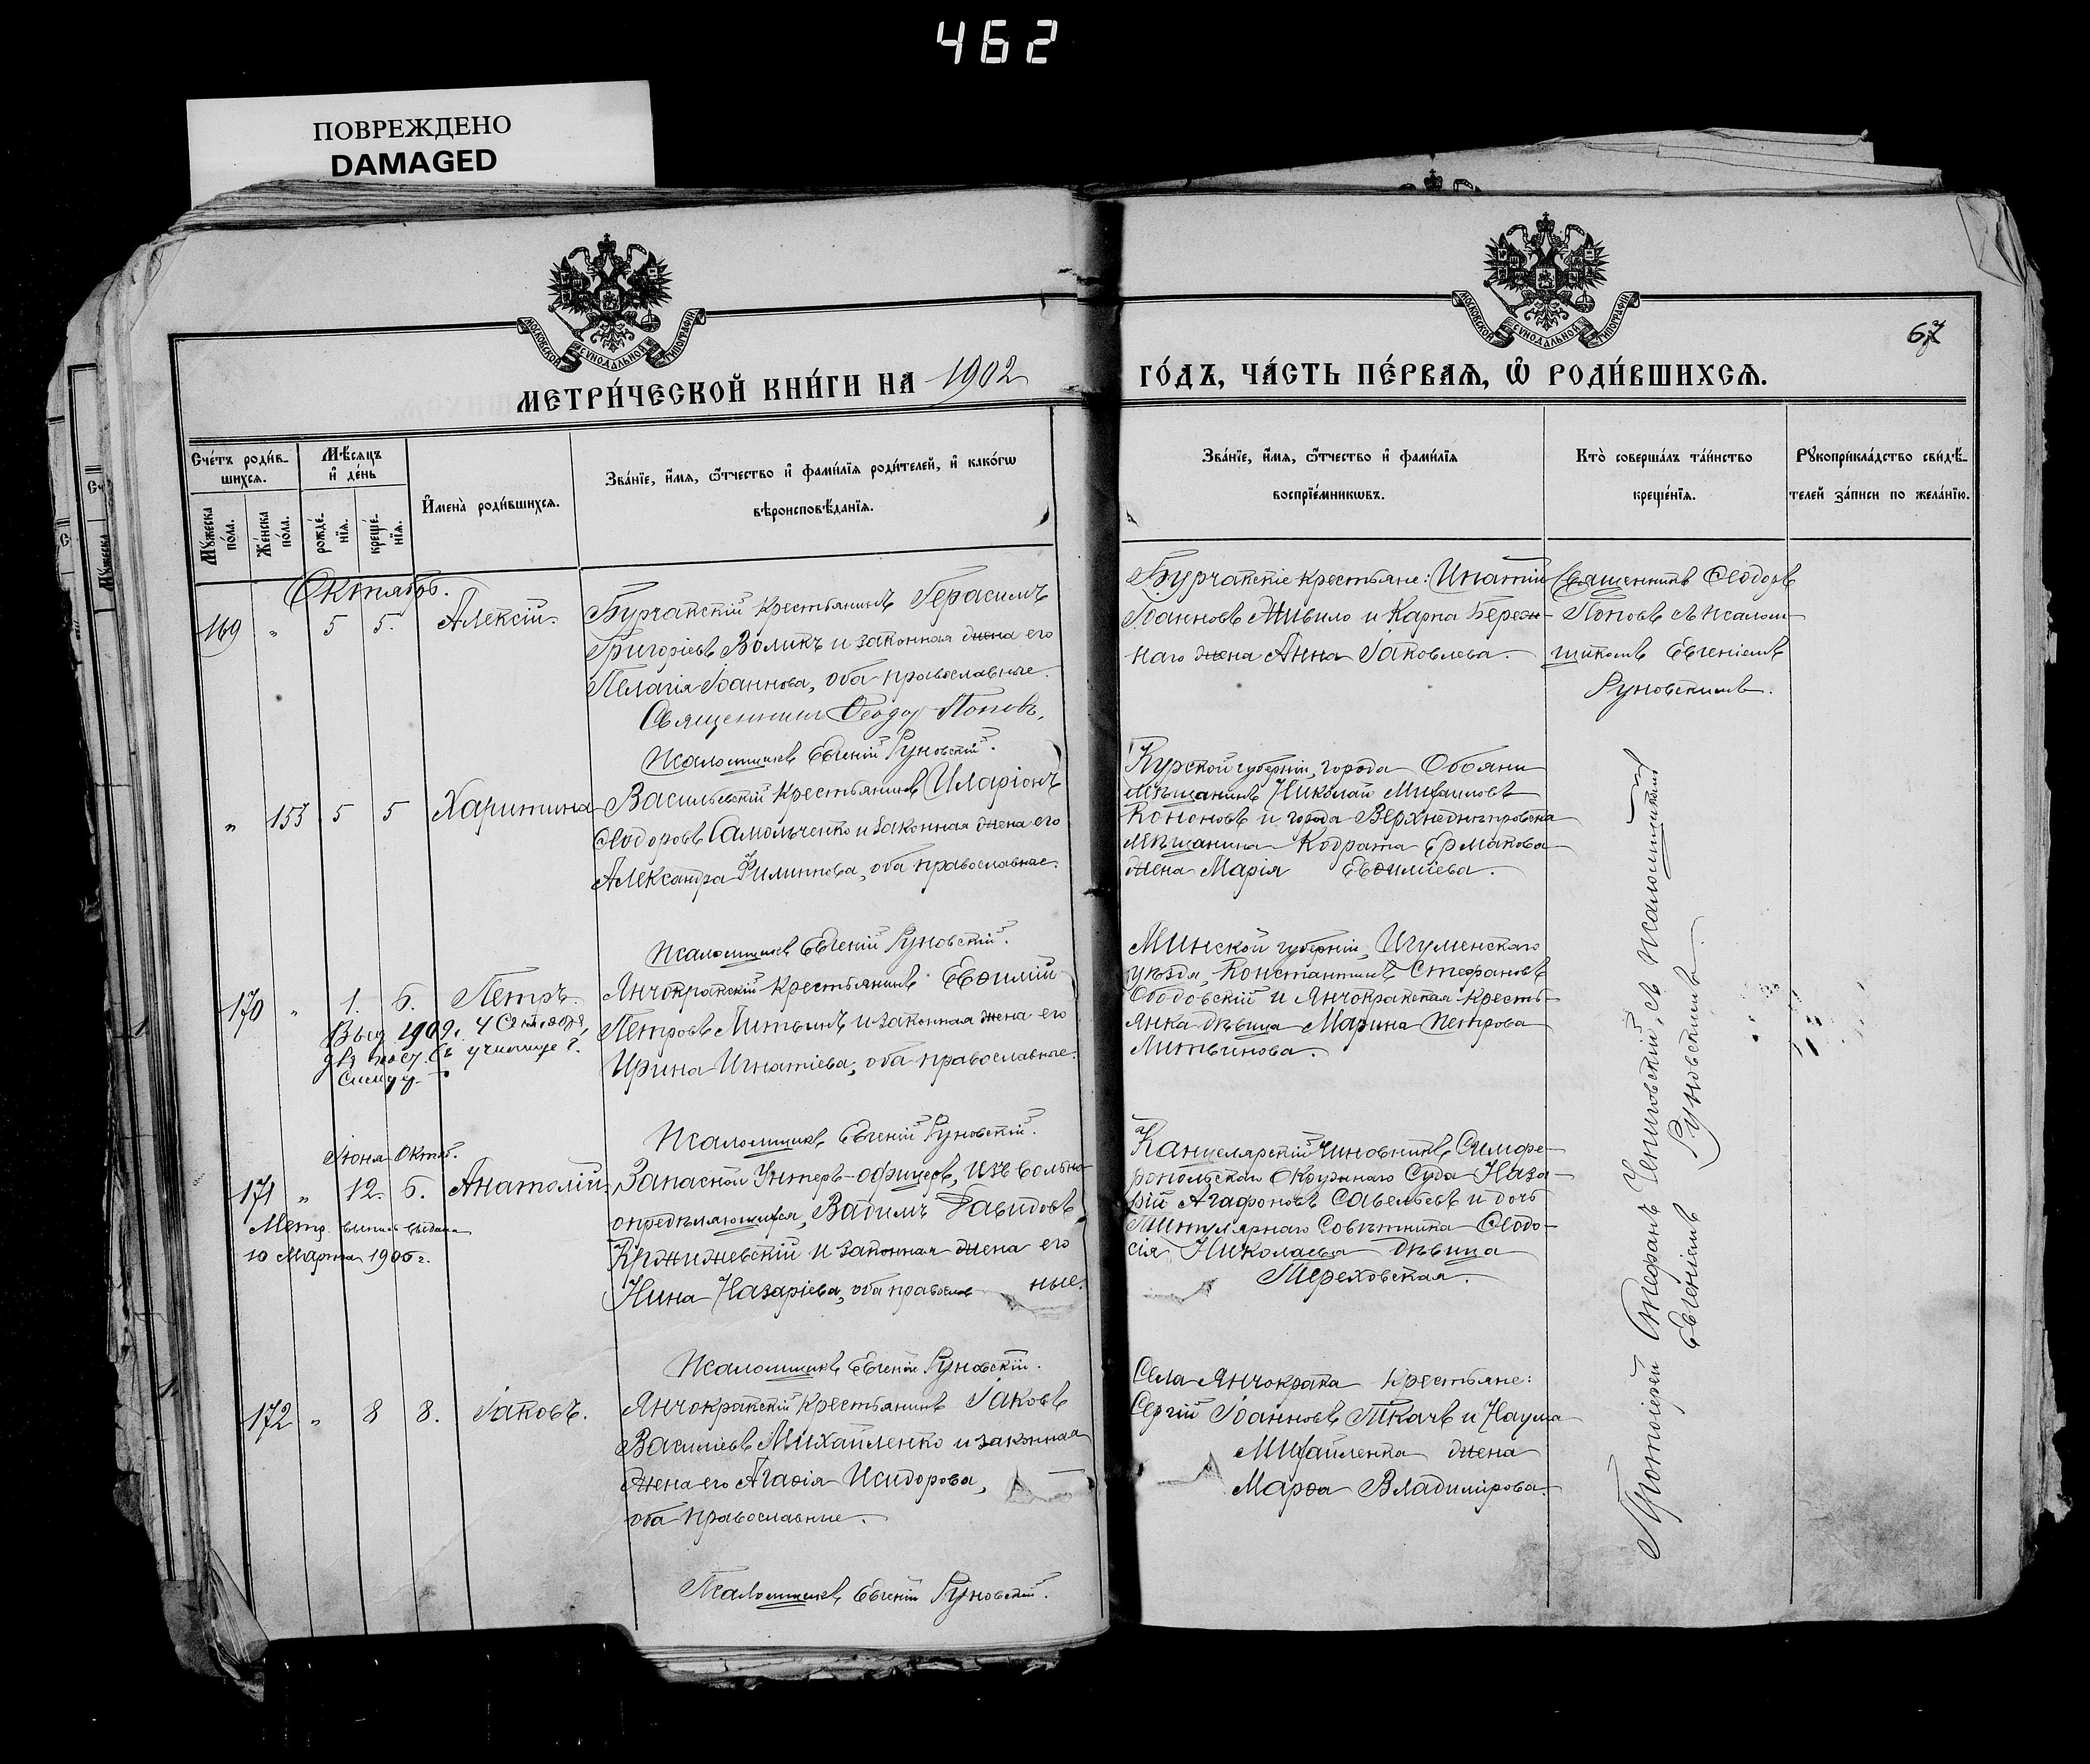 462
ПОВРЕЖДЕНО
DAMAGED
МОСКОВСКОЙ СѴНОДАЛЬНОЙ ТИПОГРАФІИ
МОСКОВСКОЙ СѴНОДАЛЬНОЙ ТИПОГРАФІИ
67
МЕТРИ́ЧЕСКОЙ КНИ́ГИ НА 1902
ГО́ДЪ, ЧА́СТЬ ПЕ́РВАѦ, Ѽ РОДИ́ВШИХСѦ.
Сче́тъ роди́в-
шихсѧ.
Мѣ́сѧцъ
и҆ де́нь
Мꙋ́жеска
по́ла.
Же́нска
по́ла.
рожде́-
нїѧ.
креще́-
нїѧ.
И҆мена̀ роди́вшихсѧ.
Зва́нїе, и҆́мѧ, ѻ҆́тчество и҆ фами́лїѧ роди́телей, и҆ какогѡ
вѣроисповѣ́данїѧ.
Зва́нїе, и҆́мѧ, ѻ҆́тчество и҆ фами́лїѧ
воспрїе́мникѡвъ.
Кто̀ соверша́лъ та́инство
креще́нїѧ.
Рꙋкоприкла́дство свидѣ́-
телей за́писи по жела́нїю.
Октябрь.
169 " 5 5. Алексій.
Бурчатскій крестьянинъ Герасимъ
Григоріевъ Воликъ и законная жена его
Пелагія Іоаннова, оба православные.
Священникъ Ѳеодоръ Поповъ,
Псаломщикъ Евгеній Руновскій.
Бурчатскіе крестьяне: Ипатій
Іоанновъ Живило и Карпа Береж-
наго жена Анна Іаковлева.
Священникъ Ѳеодоръ
Поповъ съ псалом-
щикомъ Евгеніемъ
Руновскимъ.
" 153 5 5 Харитина
Васильевскій крестьянинъ Иларіонъ
Ѳеодоровъ Самольченко и законная жена его
Александра Филиппова, оба православные.
Псаломщикъ Евгеній Руновскій.
Курской губерніи, города Обояни
мѣщанинъ Николай Михаиловъ
Кононовъ и города Верхнеднѣпровска
мѣщанина Кодрата Ермакова
жена Марія Евѳиміева.
170 " 1. 6. Петръ.
Выд 1909 г. 4 Сентября,
для пост. въ училище
Янчокракскій крестьянинъ Евѳимій
Петровъ Литвинъ и законная жена его
Ирина Игнатіева, оба православные.
Псаломщикъ Евгеній Руновскій.
Минской губерніи, Игуменскаго
уѣзда, Константинъ Стефановъ
Ободовскій и Янчокракская кресть-
янка дѣвица Марина Петрова
Литвинова.
Іюня Октяб.
171 " 12. 6. Анатолій
Метр. выпись выдана
10 Марта 1906 г.
Запасной Унтеръ-офицеръ, изъ вольно-
опредѣляющихся, Вадимъ Давидовъ
Кржижевскій и законная жена его
Нина Назаріева, оба православ ные.
Псаломщикъ Евгеній Руновскій.
Канцелярскій чиновникъ Симфе-
ропольскаго Окружнаго Суда Наза-
рій Агафоновъ Савельевъ и дочь
Титулярнаго Совѣтника Ѳеодо-
сія Николаева дѣвица
Тереховская.
172 " 8 8. Іаковъ.
Янчокракскій крестьянинъ Іаковъ
Василіевъ Михайленко и законная
жена его Агаѳія Исидорова,
оба православные.
Псаломщикъ Евгеній Руновскій.
Села Янчокрака крестьяне:
Сергій Іоанновъ Ткачъ и Наума
Михайленка жена
Марѳа Владимірова.
Протоіерей Стефанъ Чепиговскій, съ псаломщикомъ
Евгеніемъ Руновскимъ.